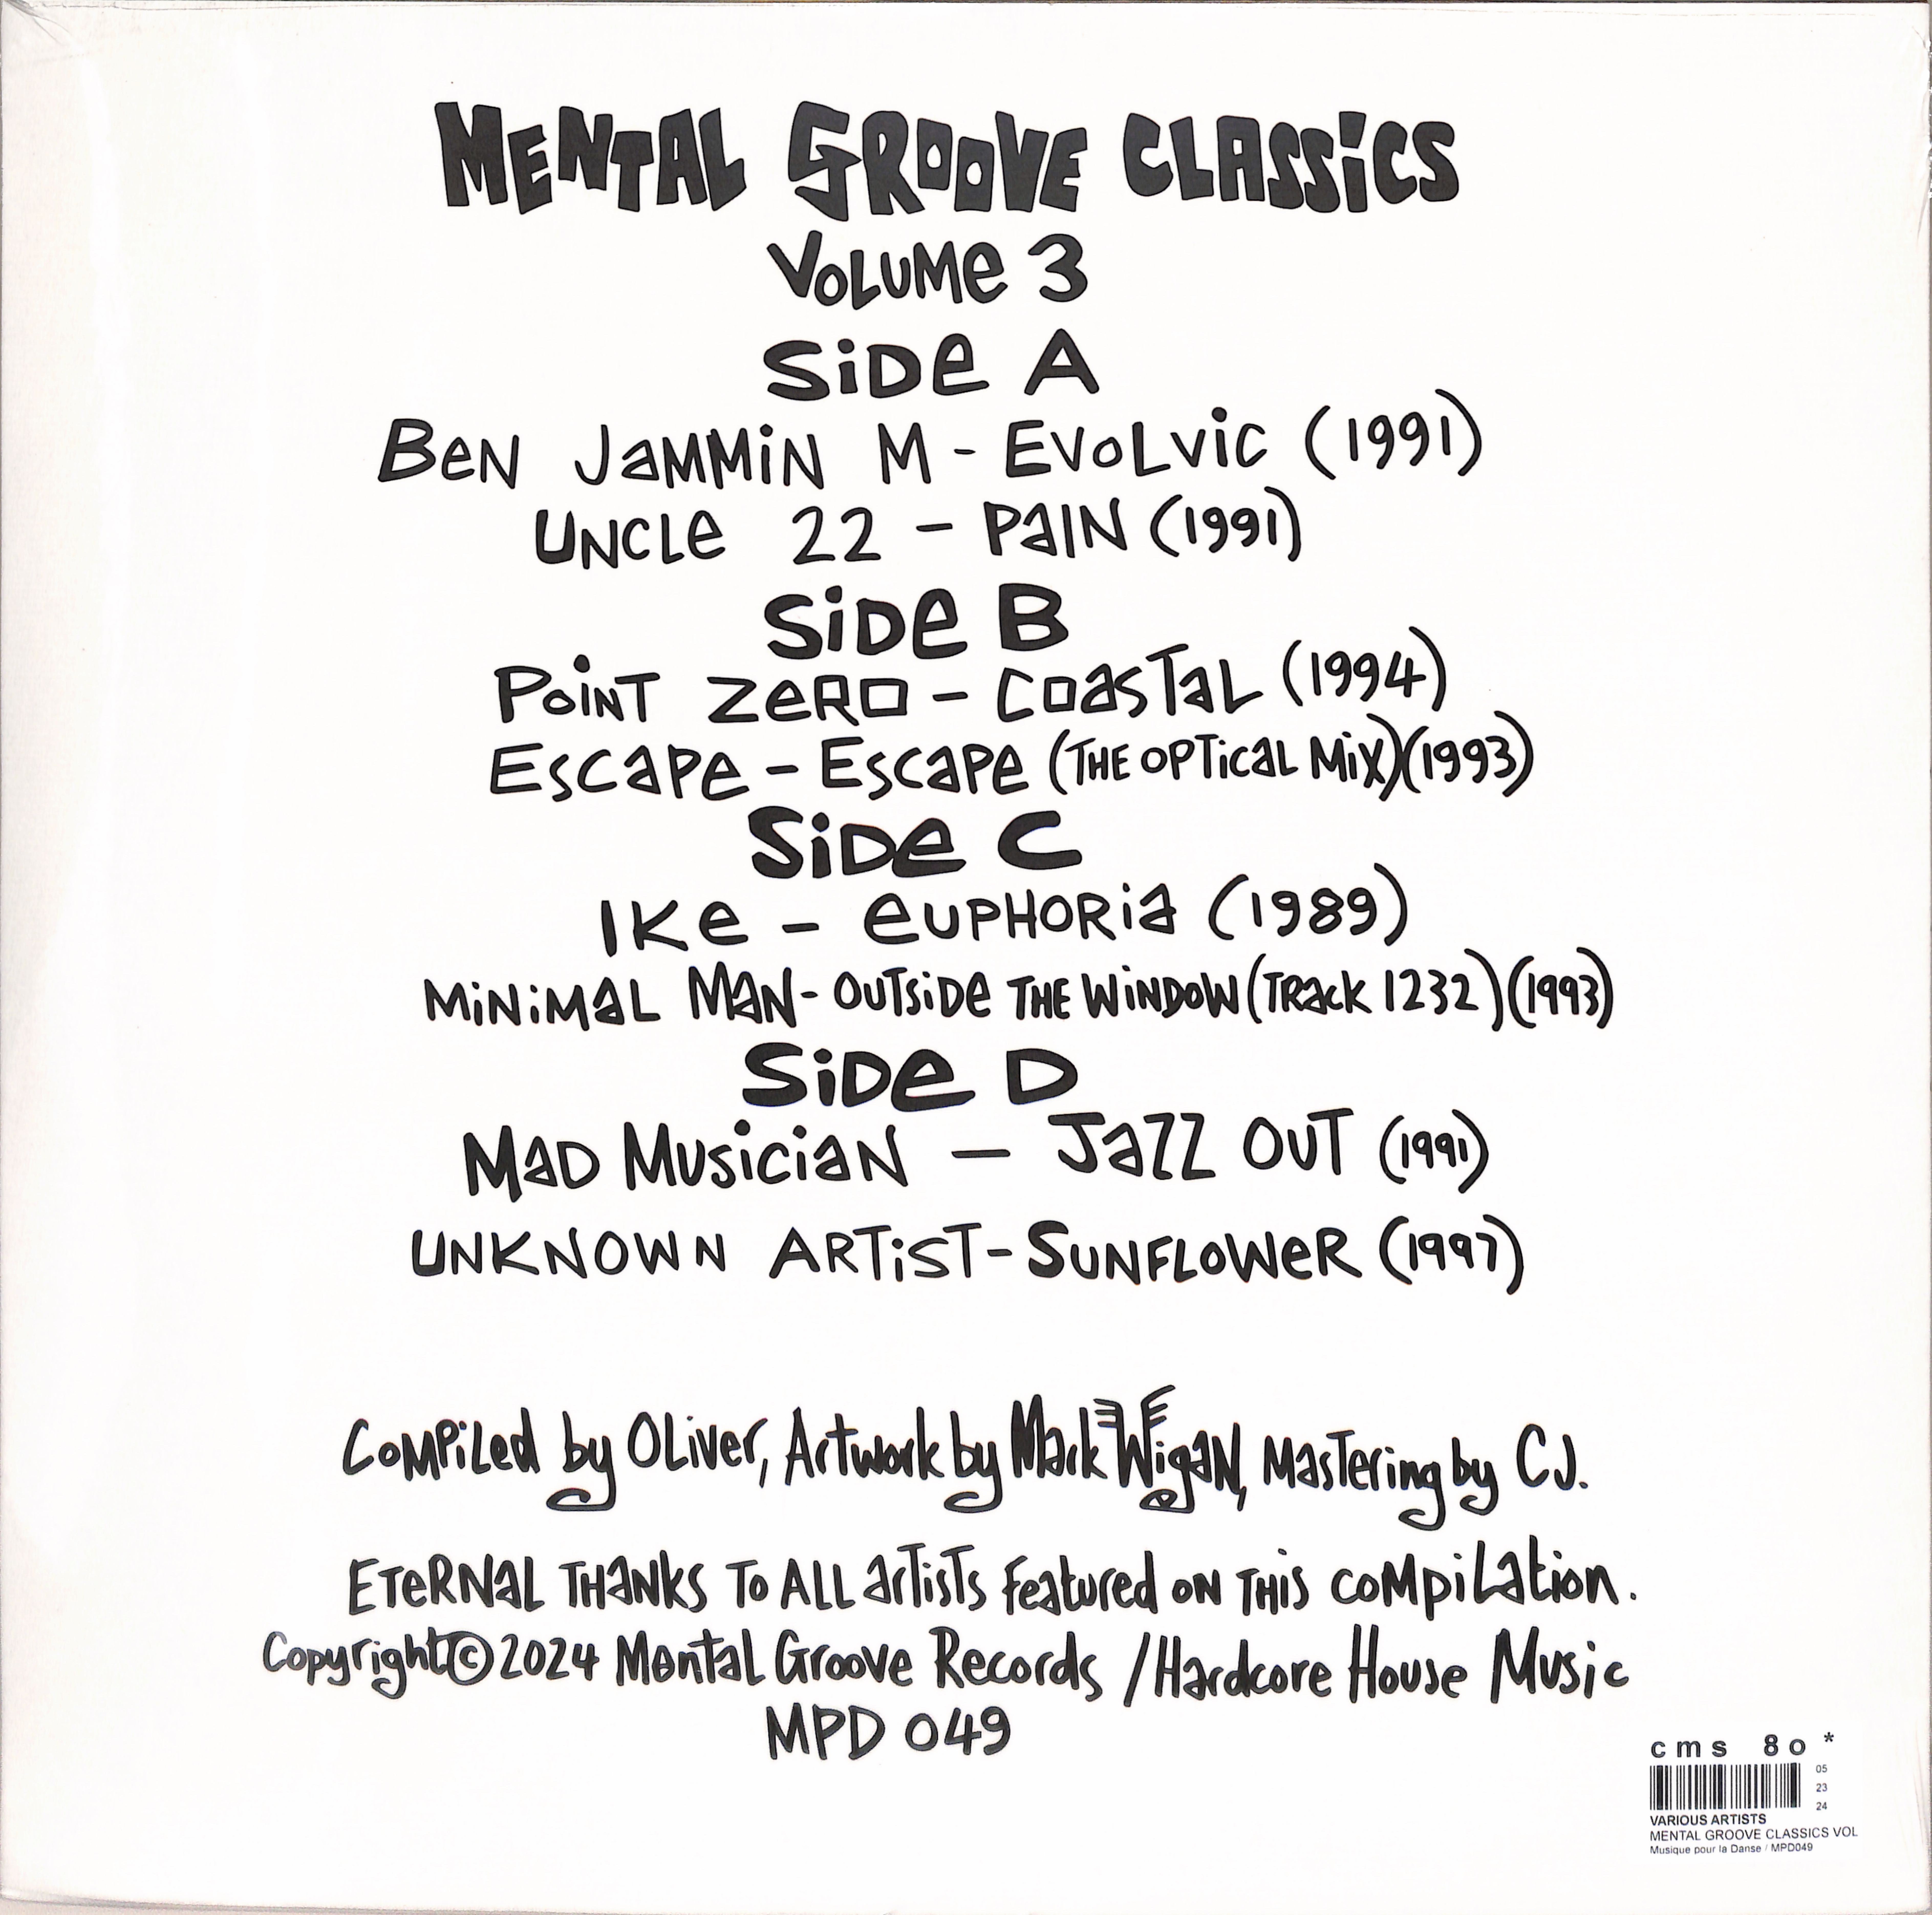 MENTAL GROOVE CLASSiCS
VOLUMe 3
SiDe A
BeN JaMMiN M - EVOLViC (1991)
UNCLe 22 - PaIN (1991)
SiDe B
POiNT ZeRO - COaSTaL (1994)
ESCaPe - ESCaPe (THE OPTiCaL MiX)(1993)
SiDe C
IKe - eUPHORia (1989)
MiNiMaL MaN - OUTSiDe THE WiNDOW (TRack 1232)(1993)
SiDe D
MaD MUSiCiaN - JaZZ OUT (1991)
UNKNOWN ARTiST - SUNFLOWeR (1997)
COMPiLed by OLiver, Artwork by Mark WigaN, MaSTering by CJ.
ETeRNaL THaNKS TO ALL arTiSTS Featured ON THiS COMpiLaTion.
Copyright © 2024 MentaL Groove Records / Hardcore House Music
MPD 049
cms 80 *
05
23
24
VARIOUS ARTISTS
MENTAL GROOVE CLASSICS VOL
Musique pour la Danse / MPD049